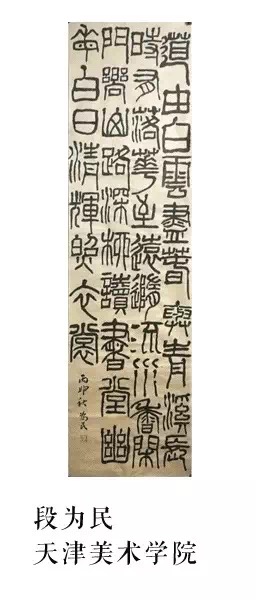 道由白雲盡春與青溪長
時有落華至遠隨流水香閑
門嚮山路深柳讀書堂幽
每白日清輝照衣裳
丙申秋為民
段为民
天津美术学院